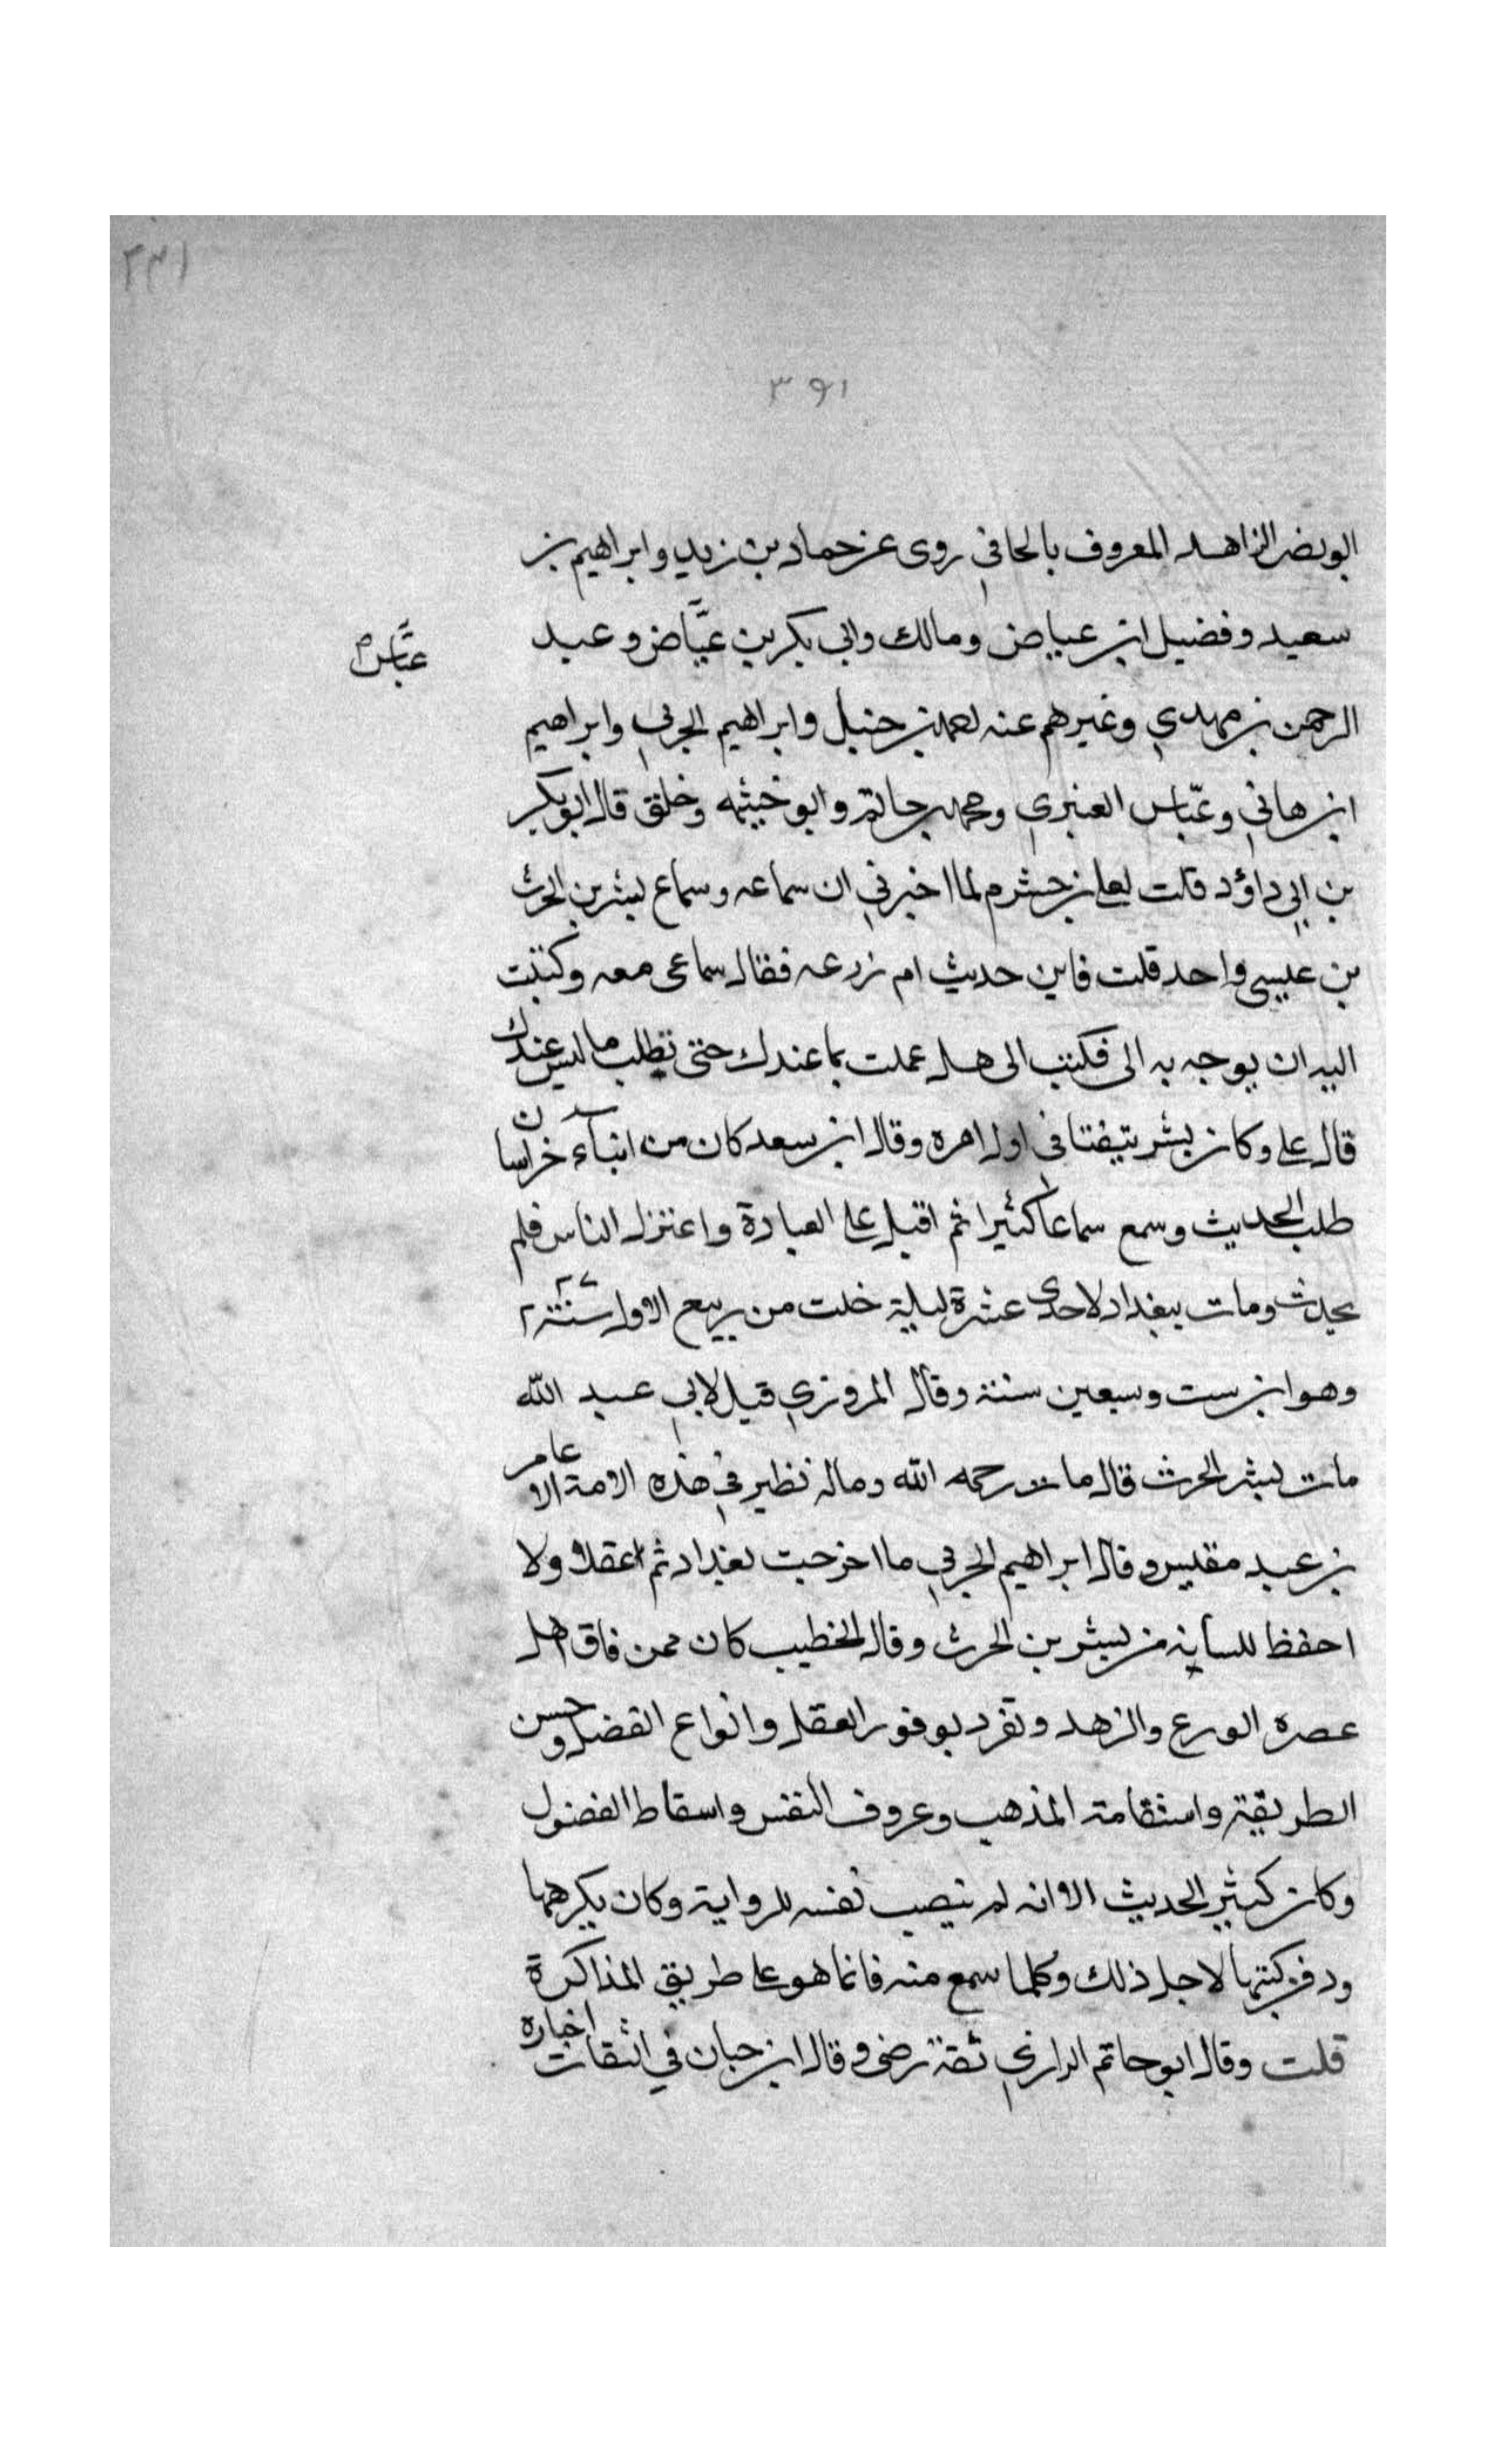 ٢٣١
٣٩١
ابو نصر الزاهد المعروف بالحافي روى عن حماد بن زيد وابراهيم بن
سعيد وفضيل ابن عياض ومالك وابي بكر بن عيَّاض وعبد
عبَّاس
الرحمن بن مهدي وغيرهم عنه احمد بن حنبل وابراهيم الحربي وابراهيم
ابن هاني وعبّاس العنبري ومحمد بن حاتم وابو خيثمه وخلق قال ابو بكر
بن ابي داؤد قلت لعلي بن خشرم لما اخبرني ان سماعه وسماع بشر بن الحرث
بن عيسى واحد قلت فاين حديث ام زرعه فقال سماعى معه وكتبت
اليه ان يوجه به الى فكتب الى هل عملت بما عندك حتى تطلب ما ليس عندك
قال على وكان بشر يتيفتا في اول امره وقال ابن سعد كان من ابنآء خراسان
طلب الحديث وسمع سماعا كثيرا ثم اقبل على العبادة واعتزل الناس فلم
يحدث ومات ببغداد لاحدى عشرة ليلة خلت من ربيع الاول سنة ٢٢٧
وهو ابن ست وسبعين سنة وقال المروزي قيل لابي عبد الله
مات بشر الحرث قال مات رحمه الله وماله نظير في هذه الامة الا عامر
بن عبد مقيس وقال ابراهيم الحربي ما اخرجت بغداد ثم اعقل ولا
احفظ للسانه من بشر بن الحرث وقال الخطيب كان ممن فاق اهل
عصره الورع والزهد وتفرد بوفور العقل وانواع الفضل وحسن
الطريقة واستقامة المذهب وعروف النفس واسقاط الفضول
وكان كثير الحديث الا انه لم ينصب نفسه للرواية وكان يكرهها
ودفن كتبها لاجل ذلك وكلما سمع منه فانما هو على طريق المذاكرة
قلت وقال ابو حاتم الرازي ثقة رضى وقال ابن حبان في الثقات اخباره